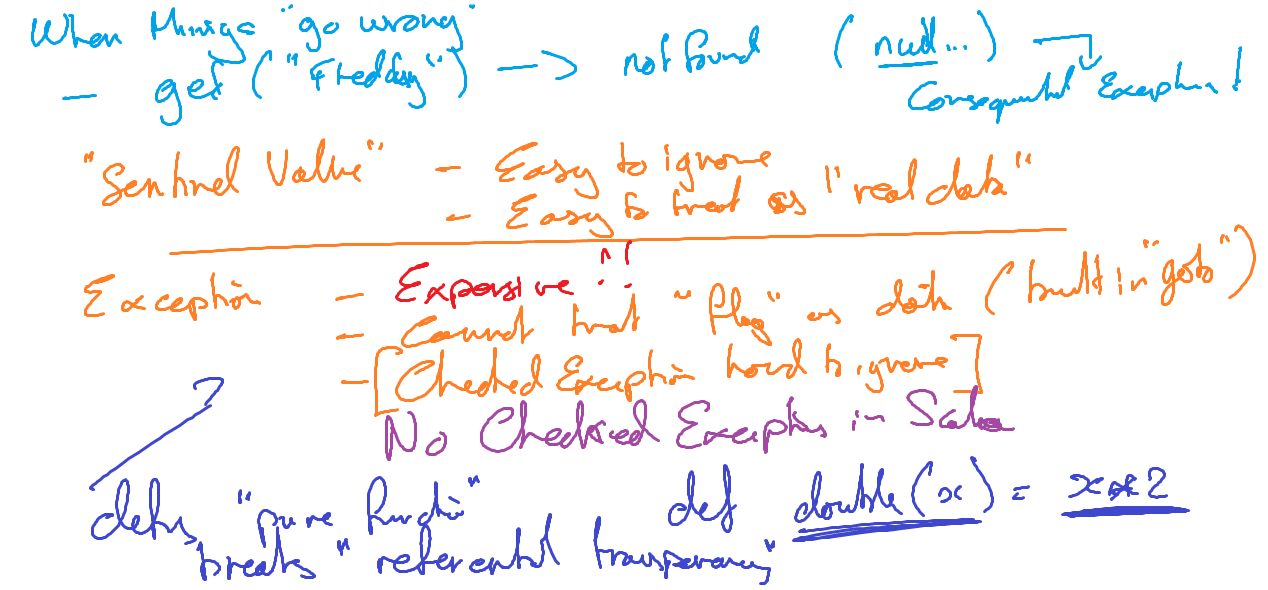 When things "go wrong"
- get("Freddy") -> not found (null...)
Consequential Exception!
"Sentinel Value" - Easy to ignore
- Easy to treat as "real data"
Exception - Expensive!!
- Cannot treat "flag" as data (built in "goto")
- [Checked Exception hard to ignore]
No Checked Exceptions in Scala
"pure function" def double(x) = x * 2
breaks "referential transparency"